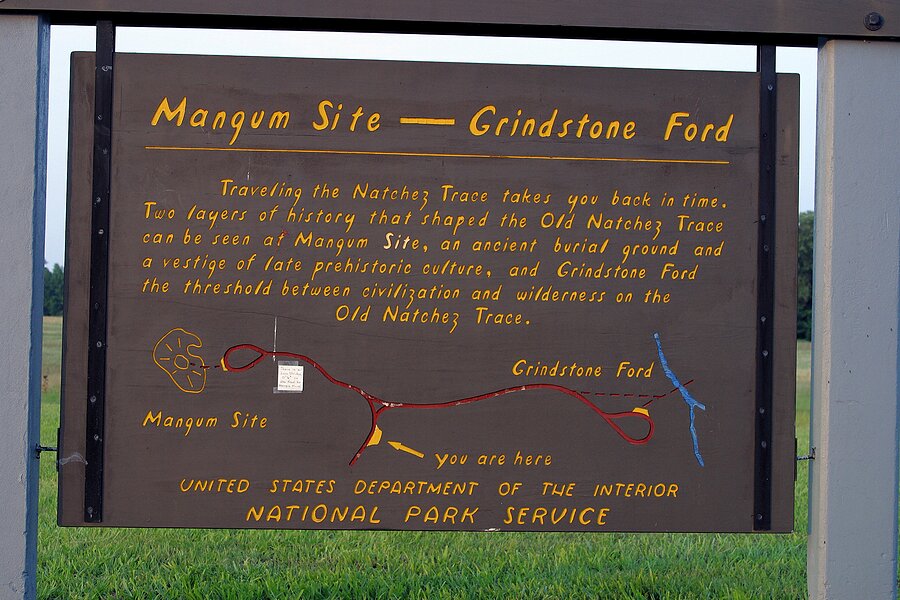 Mangum Site — Grindstone Ford
Traveling the Natchez Trace takes you back in time.
Two layers of history that shaped the Old Natchez Trace
can be seen at Mangum Site, an ancient burial ground and
a vestige of late prehistoric culture, and Grindstone Ford
the threshold between civilization and wilderness on the
Old Natchez Trace.
Grindstone Ford
Mangum Site
You are here
UNITED STATES DEPARTMENT OF THE INTERIOR
NATIONAL PARK SERVICE